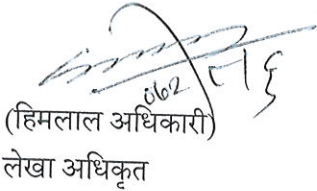 (हिमलाल अधिकारी)
लेखा अधिकृत